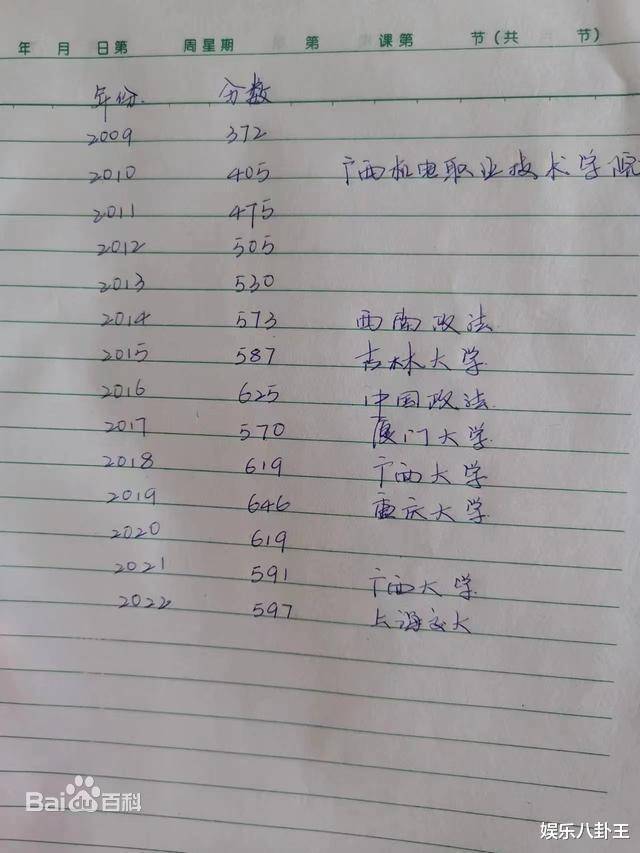 年 月 日第 周星期 第 课第 节(共 节)
年份. 分数
2009 372
2010 405 广西机电职业技术学院
2011 475
2012 505
2013 530
2014 573 西南政法
2015 587 吉林大学
2016 625 中国政法.
2017 570 厦门大学
2018 619 广西大学
2019 646 重庆大学
2020 619
2021 591 广西大学
2022 597 上海交大
Bai du 百科
娱乐八卦王